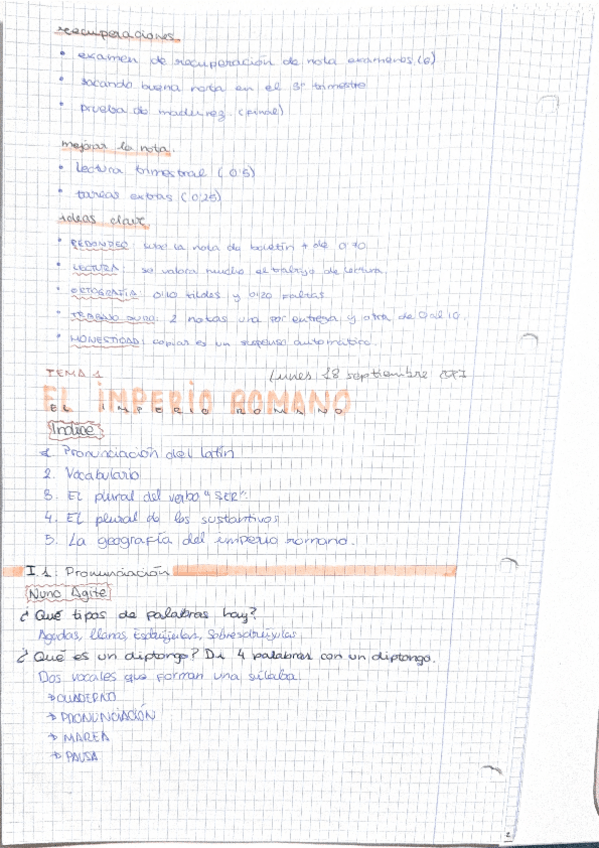 recuperaciones.
• examen de recuperación de nota exámenes (6)
• sacando buena nota en el 3º trimestre
• prueba de madurez. (final)
mejorar la nota.
• lectura trimestral (0'5)
• tareas extras (0'25)
ideas clave
• REDONDEO: sube la nota de boletín + de 0'70.
• LECTURA: se valora mucho el trabajo de lectura.
• ORTOGRAFÍA: 0'10 tildes y 0'20 faltas
• TRABAJO DURO: 2 notas una por entrega y otra de 0 al 10.
• HONESTIDAD: copiar es un suspenso automático.
TEMA 1 Lunes 18 septiembre 2017
EL IMPERIO ROMANO
EL IMPERIO ROMANO
Indice
1. Pronunciación del latín
2. Vocabulario
3. El plural del verbo "SER".
4. El plural de los sustantivos
5. La geografía del imperio romano.
I.1. Pronunciación
Nunc Agite
¿Qué tipos de palabras hay?
Agudas, llanas, Esdrújulas, Sobresdrújulas
¿Qué es un diptongo? Di 4 palabras con un diptongo.
Dos vocales que forman una sílaba.
→ CUADERNO
→ PRONUNCIACIÓN
→ MAREA
→ PAUSA